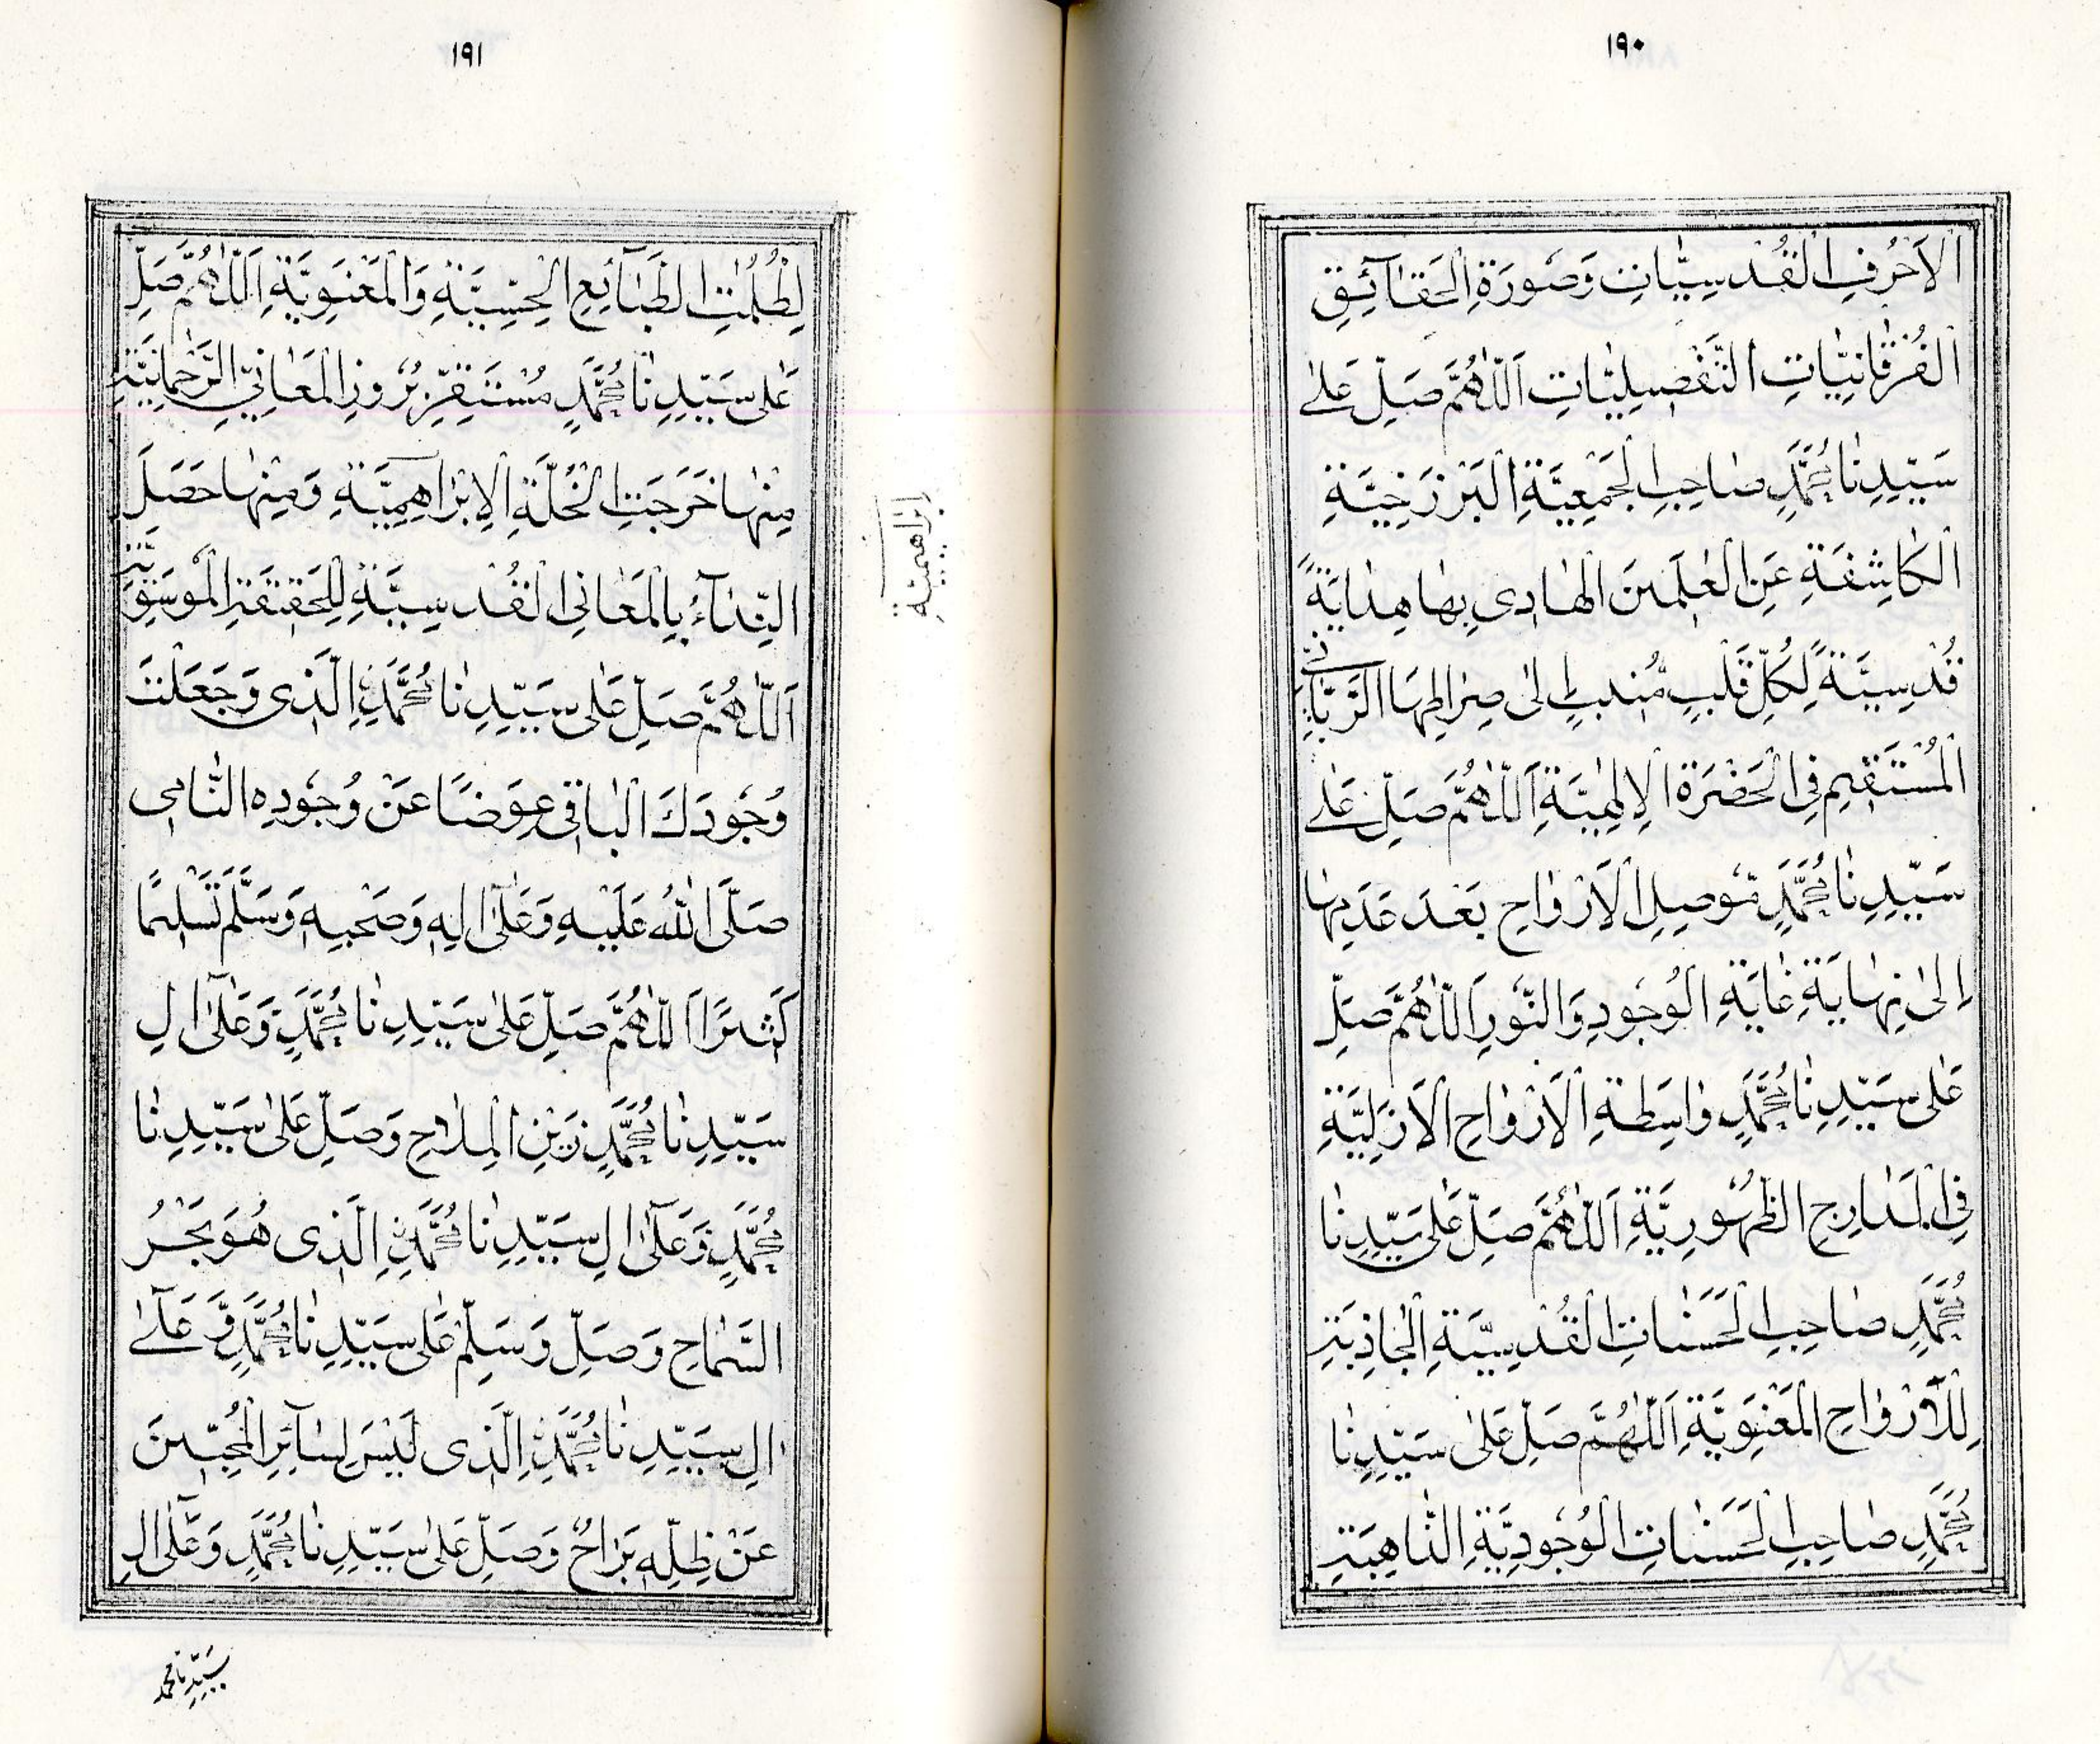 ١٩٠
اَلْاَحْرُفِ الْقُدْسِيَّاتِ وَصُورَةِ الْحَقَآئِقِ
الْفُرْقَانِيَّاتِ التَّفْصِيلِيَّاتِ اَللّٰهُمَّ صَلِّ عَلٰى
سَيِّدِنَا مُحَمَّدٍ صَاحِبِ الْجَمْعِيَّةِ الْبَرْزَخِيَّةِ
الْكَاشِفَةِ عَنِ الْعٰلَمِينَ الْهَادِى بِهَا هِدَايَةً
قُدْسِيَّةً لِكُلِّ قَلْبٍ مُنِيبٍ اِلٰى صِرَاطِهَا الرَّبَّانِىِّ
الْمُسْتَقِيمِ فِى الْحَضْرَةِ الْاِلٰهِيَّةِ اَللّٰهُمَّ صَلِّ عَلٰى
سَيِّدِنَا مُحَمَّدٍ مُوصِلِ الْاَرْوَاحِ بَعْدَ عَدَمِهَا
اِلٰى نِهَايَةِ غَايَةِ الْوُجُودِ وَالنُّورِ اَللّٰهُمَّ صَلِّ
عَلٰى سَيِّدِنَا مُحَمَّدٍ وَاسِطَةِ الْاَرْوَاحِ الْاَزَلِيَّةِ
فِى الْمَدَارِجِ الظُّهُورِيَّةِ اَللّٰهُمَّ صَلِّ عَلٰى سَيِّدِنَا
مُحَمَّدٍ صَاحِبِ الْحَسَنَاتِ الْقُدْسِيَّةِ الْجَاذِبَةِ
لِلْاَرْوَاحِ الْمَعْنَوِيَّةِ اَللّٰهُمَّ صَلِّ عَلٰى سَيِّدِنَا
مُحَمَّدٍ صَاحِبِ الْحَسَنَاتِ الْوُجُودِيَّةِ الذَّاهِبَةِ
١٩١
لِظُلُمٰتِ الطَّبَآئِعِ الْحِسِّيَّةِ وَالْمَعْنَوِيَّةِ اَللّٰهُمَّ صَلِّ
عَلٰى سَيِّدِنَا مُحَمَّدٍ مُسْتَقَرِّ بُرُوزِ الْمَعَانِى الرَّحْمَانِيَّةِ
مِنْهَا خَرَجَتِ الْخُلَّةِ الْاِبْرَاهِمِيَّةِ وَمِنْهَا حَصَلَ
النِّدَآءُ بِالْمَعَانِى الْقُدْسِيَّةِ لِلْحَقِيقَةِ الْمُوسَوِيَّةِ
اَللّٰهُمَّ صَلِّ عَلٰى سَيِّدِنَا مُحَمَّدٍ الَّذِى وَجَعَلْتَ
وُجُودَكَ الْبَاقِى عِوَضًا عَنْ وُجُودِهِ
صَلَّى اللّٰهُ عَلَيْهِ وَعَلٰٓى اٰلِهِ وَصَحْبِهِ وَسَلَّمَ تَسْلِيمًا
كَثِيرًا اَللّٰهُمَّ صَلِّ عَلٰى سَيِّدِنَا مُحَمَّدٍ وَعَلٰٓى اٰلِ
سَيِّدِنَا مُحَمَّدٍ زَيْنِ الْمِلَاحِ وَصَلِّ عَلٰى سَيِّدِنَا
مُحَمَّدٍ وَعَلٰٓى اٰلِ سَيِّدِنَا مُحَمَّدٍ الَّذِى هُوَ بَحْرُ
السَّمَاحِ وَصَلِّ وَسَلِّمْ عَلٰى سَيِّدِنَا مُحَمَّدٍ وَعَلٰٓى
اٰلِ سَيِّدِنَا مُحَمَّدٍ الَّذِى لَيْسَ لِسَآئِرِ الْمُحِبِّينَ
عَنْ ظِلِّهِ بَرَاحٌ وَصَلِّ عَلٰى سَيِّدِنَا مُحَمَّدٍ وَعَلٰٓى اٰلِ
سَيِّدِنَا مُحَمَّد
اِبْرَاهِيمِيَّةِ